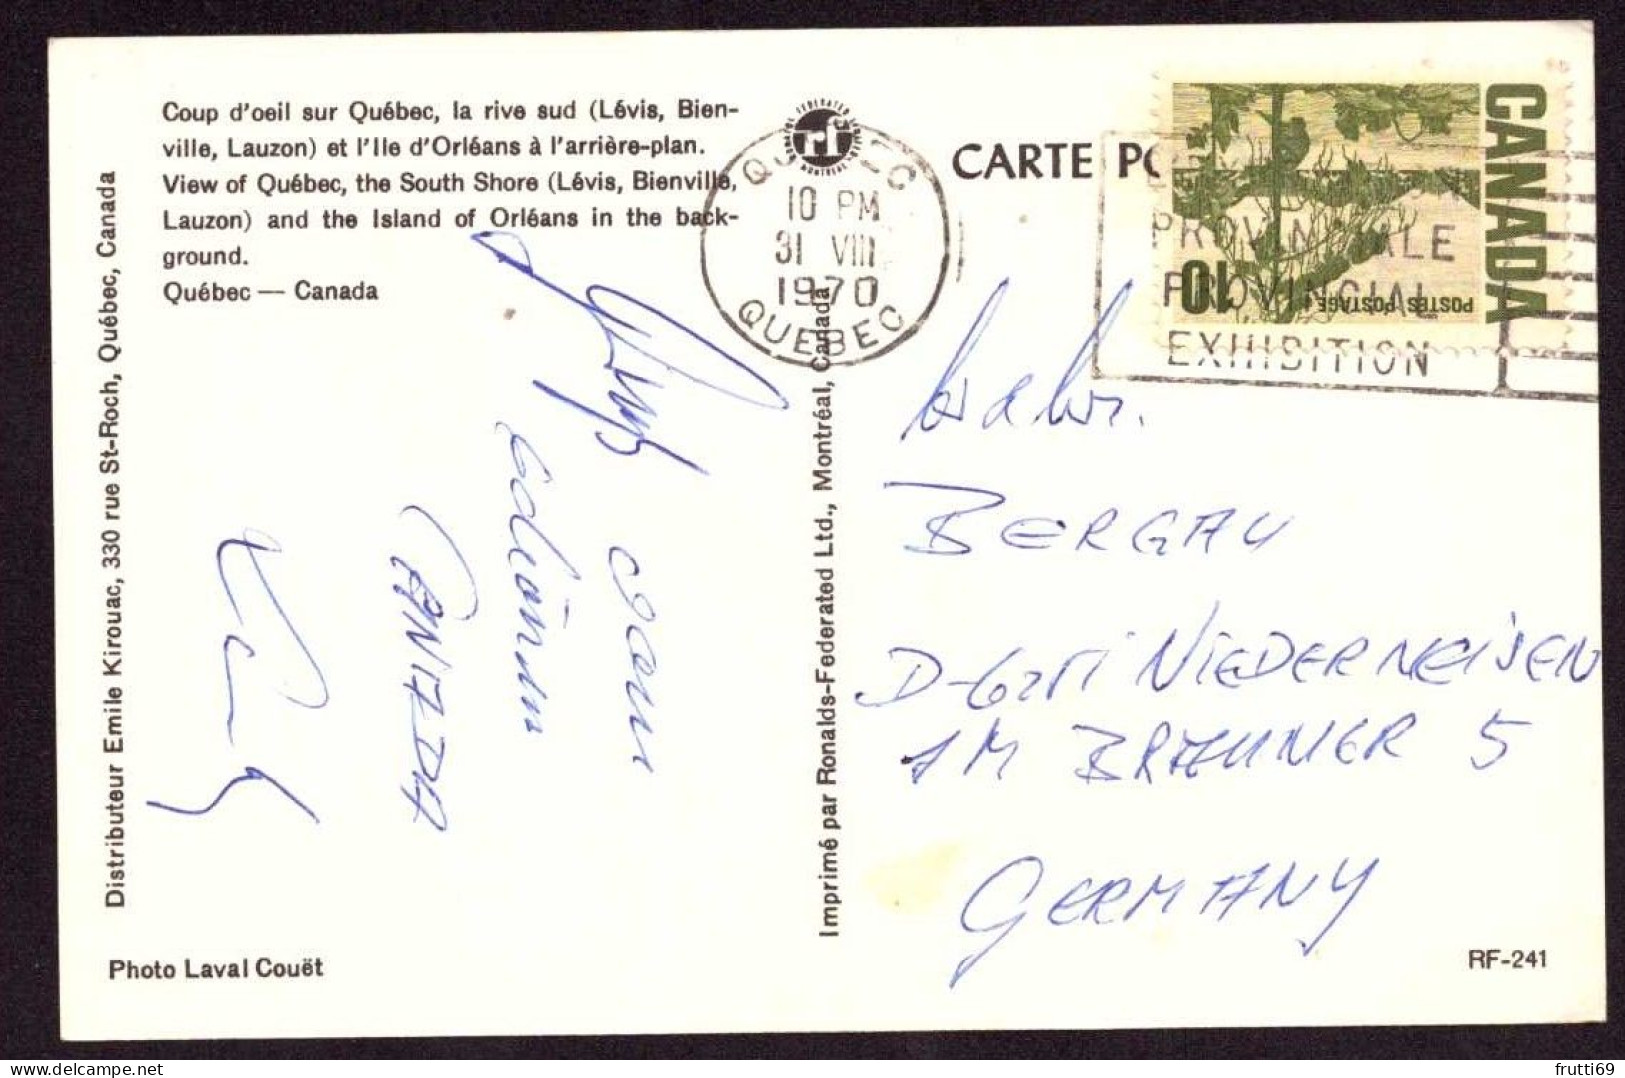 Coup d'oeil sur Québec, la rive sud (Lévis, Bien-
ville, Lauzon) et l'Ile d'Orléans à l'arrière-plan.
View of Québec, the South Shore (Lévis, Bienville,
Lauzon) and the Island of Orléans in the back-
ground.
Québec — Canada
Distributeur Emile Kirouac, 330 rue St-Roch, Québec, Canada
Photo Laval Couët
CANADA
Imprimé par Ronalds-Federated Ltd., Montréal, Canada
QUÉBEC
10 PM
31 VIII
1970
QUEBEC
CARTE PO
PROVINCIALE
PROVINCIAL
EXHIBITION
CANADA
10
POSTES POSTAGE
BERGAU
NIEDERNEISEN
5
GERMANY
RF-241
delcampe.net
frutti69